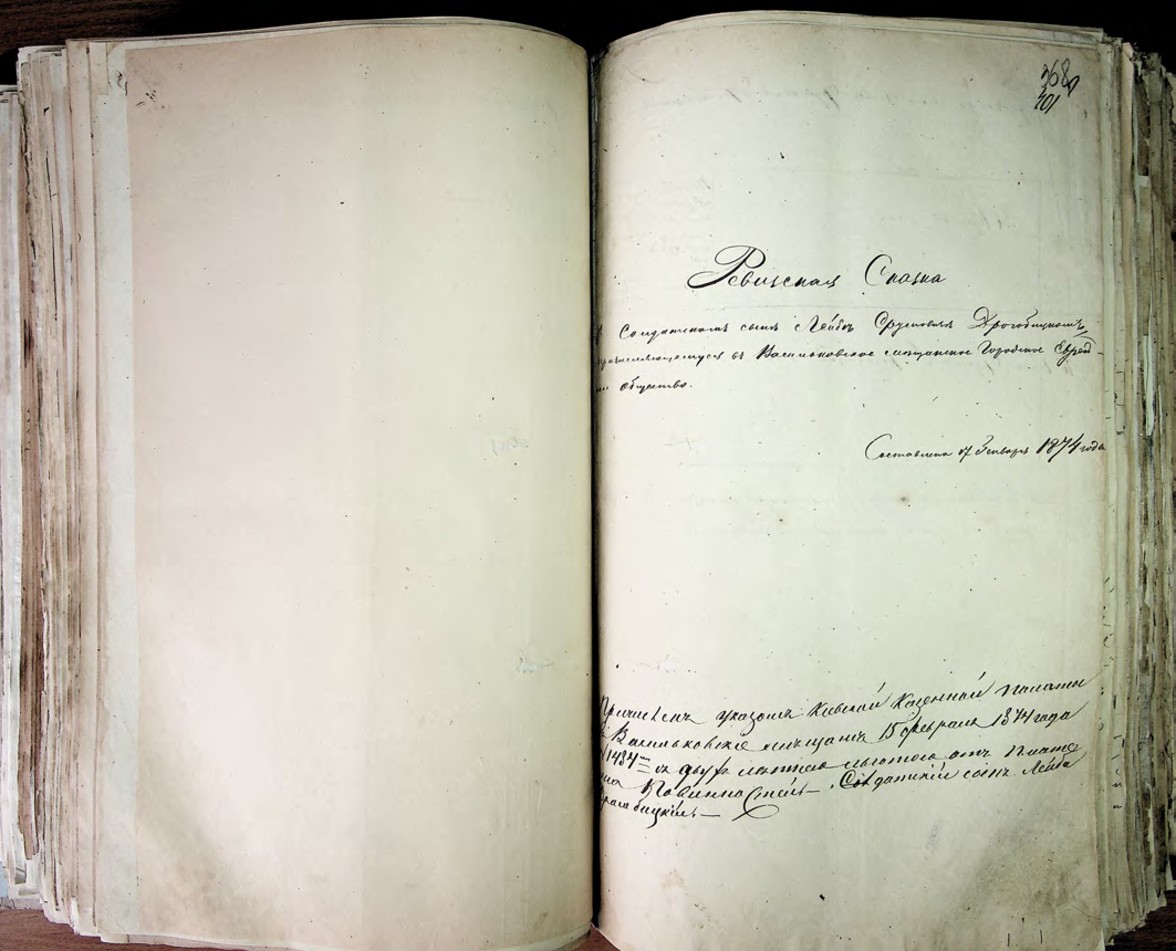 368
401
Ревизская Сказка
О Солдатскомъ сыне Лейбе Срулове Дрогобицкомъ,
причисляющемуся въ Васильковское мещанское Городское Еврей-
ское общество.
Составлена 17 Января 1874 года
Причисленъ указомъ Киевской Казенной Палаты
въ Васильковские мещане 15 февраля 1874 года
№ 1484 съ двухлетнею льготою отъ плате
жа и Повинностей. Солдатский сынъ Лейба
Драгобицкий.